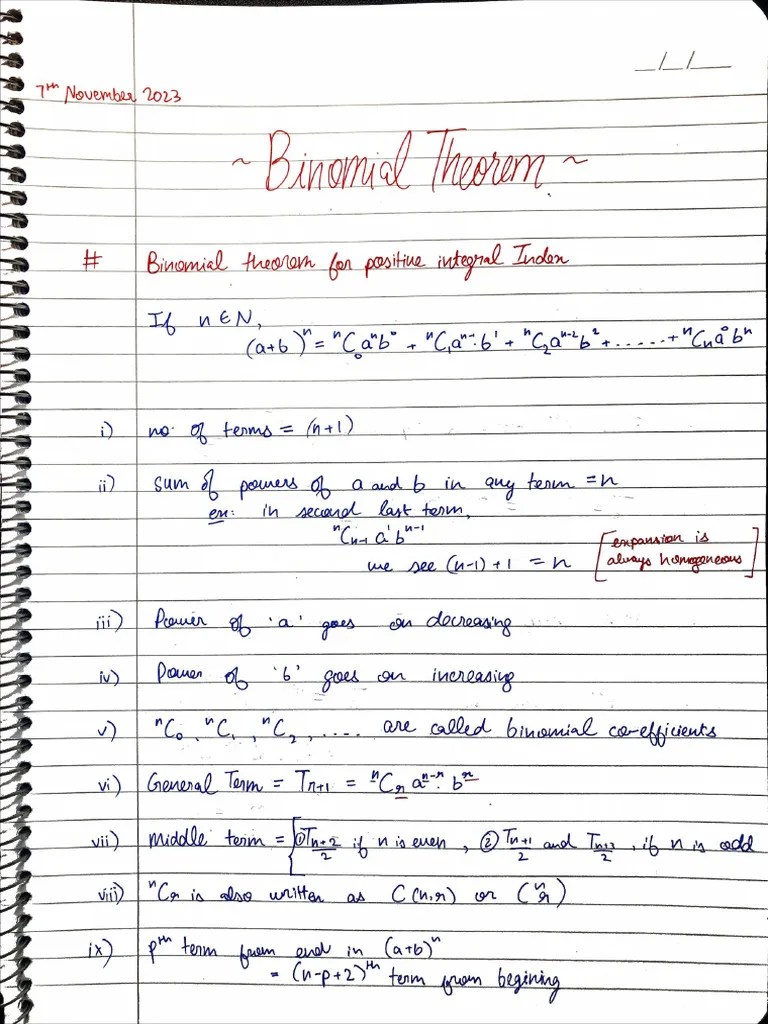 __/__/____
7ᵗʰ November 2023
~ Binomial Theorem ~
# Binomial theorem for positive integral Index
If n ∈ N,
(a+b)ⁿ = ⁿC₀aⁿb⁰ + ⁿC₁aⁿ⁻¹·b¹ + ⁿC₂aⁿ⁻²b² + ...... + ⁿCₙa⁰bⁿ
i) no. of terms = (n+1)
ii) sum of powers of a and b in any term = n
ex: in second last term,
ⁿCₙ₋₁a¹bⁿ⁻¹
we see (n-1)+1 = n [expansion is
always homogeneous]
iii) Power of 'a' goes on decreasing
iv) Power of 'b' goes on increasing
v) ⁿC₀, ⁿC₁, ⁿC₂, .... are called binomial co-efficients
vi) General Term = Tᵣ₊₁ = ⁿCᵣ aⁿ⁻ʳ· bʳ
vii) Middle term = [① T_(n+2)/2 if n is even, ② T_(n+1)/2 and T_(n+3)/2, if n is odd
viii) ⁿCᵣ is also written as C(n,r) or (ⁿᵣ)
ix) pᵗʰ term from end in (a+b)ⁿ
= (n-p+2)ᵗʰ term from begining